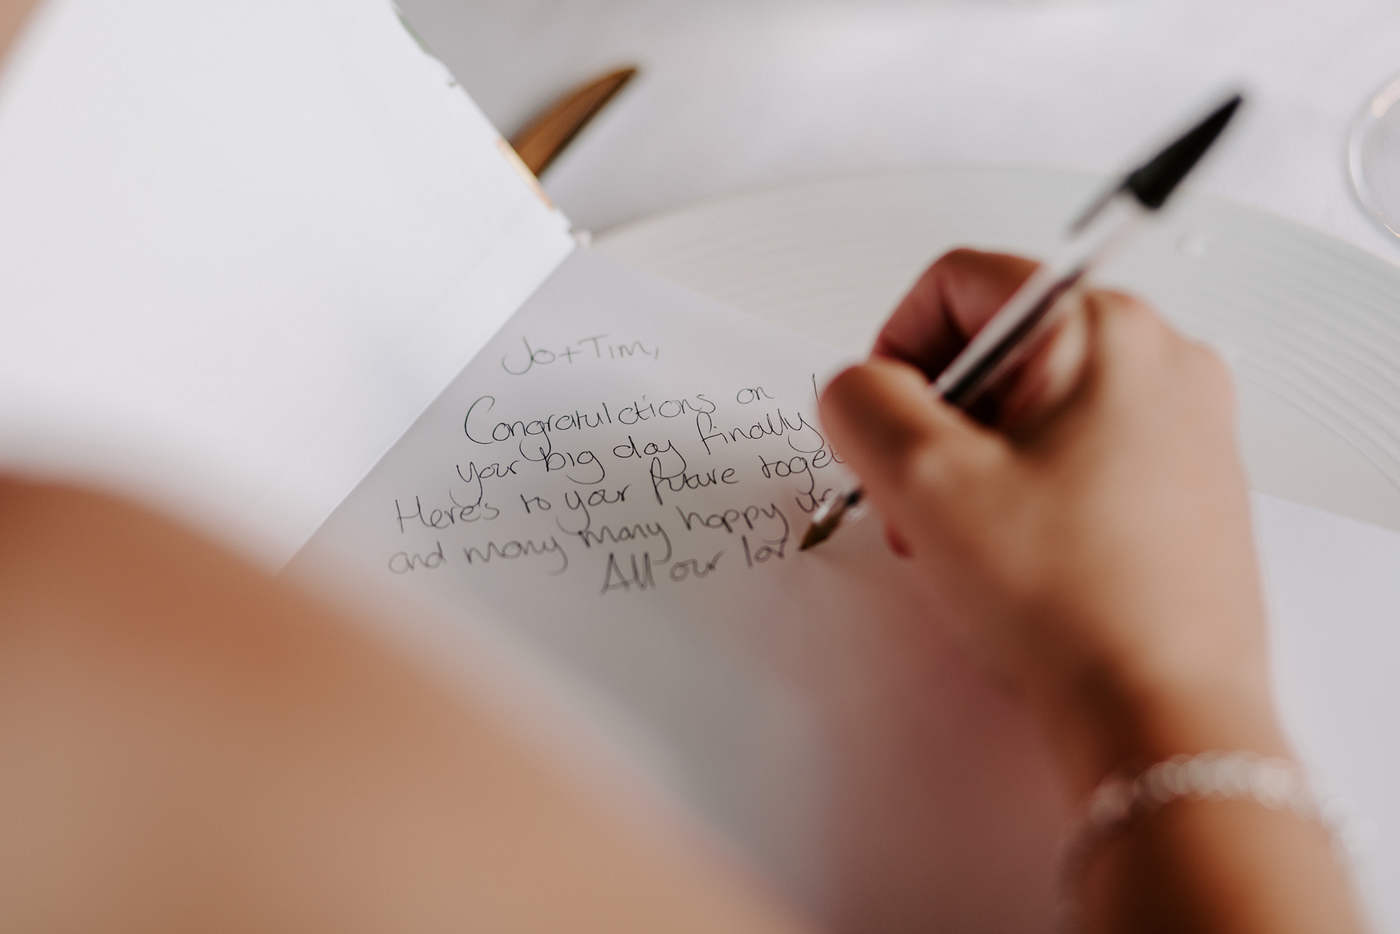 Jo + Tim,
Congratulations on
your big day finally
Here's to your future toget
and many many happy
All our lov